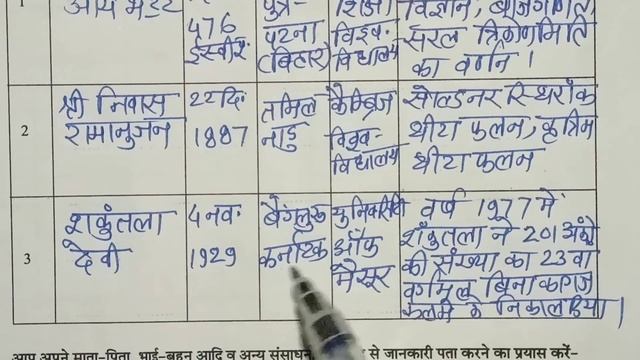 1 आर्य भट्ट
476 ईस्वी
पुत्र- पटना (बिहार)
शिक्षा विश्व- विद्यालय
विज्ञान, बीजगणित,
सरल त्रिकोणमिति
का वर्णन।
2
श्री निवास
रामानुजन
22दि·
1887
तमिल
नाडु
कैम्ब्रिज
विश्व-
विद्यालय
थीटा फलन, कृत्रिम
थीटा फलन
3
शकुंतला
देवी
4 नव·
1929
बेंगलुरु
कर्नाटक
ऑफ
मैसूर
वर्ष 1977 में
शंकुतला ने 201 अंको
की संख्या का 23 वा
वर्गमूल बिना कागज
कलम के निकाल दिया।
आप अपने माता-पिता, भाई-बहन आदि व अन्य संसाधन से जानकारी पता करने का प्रयास करें-